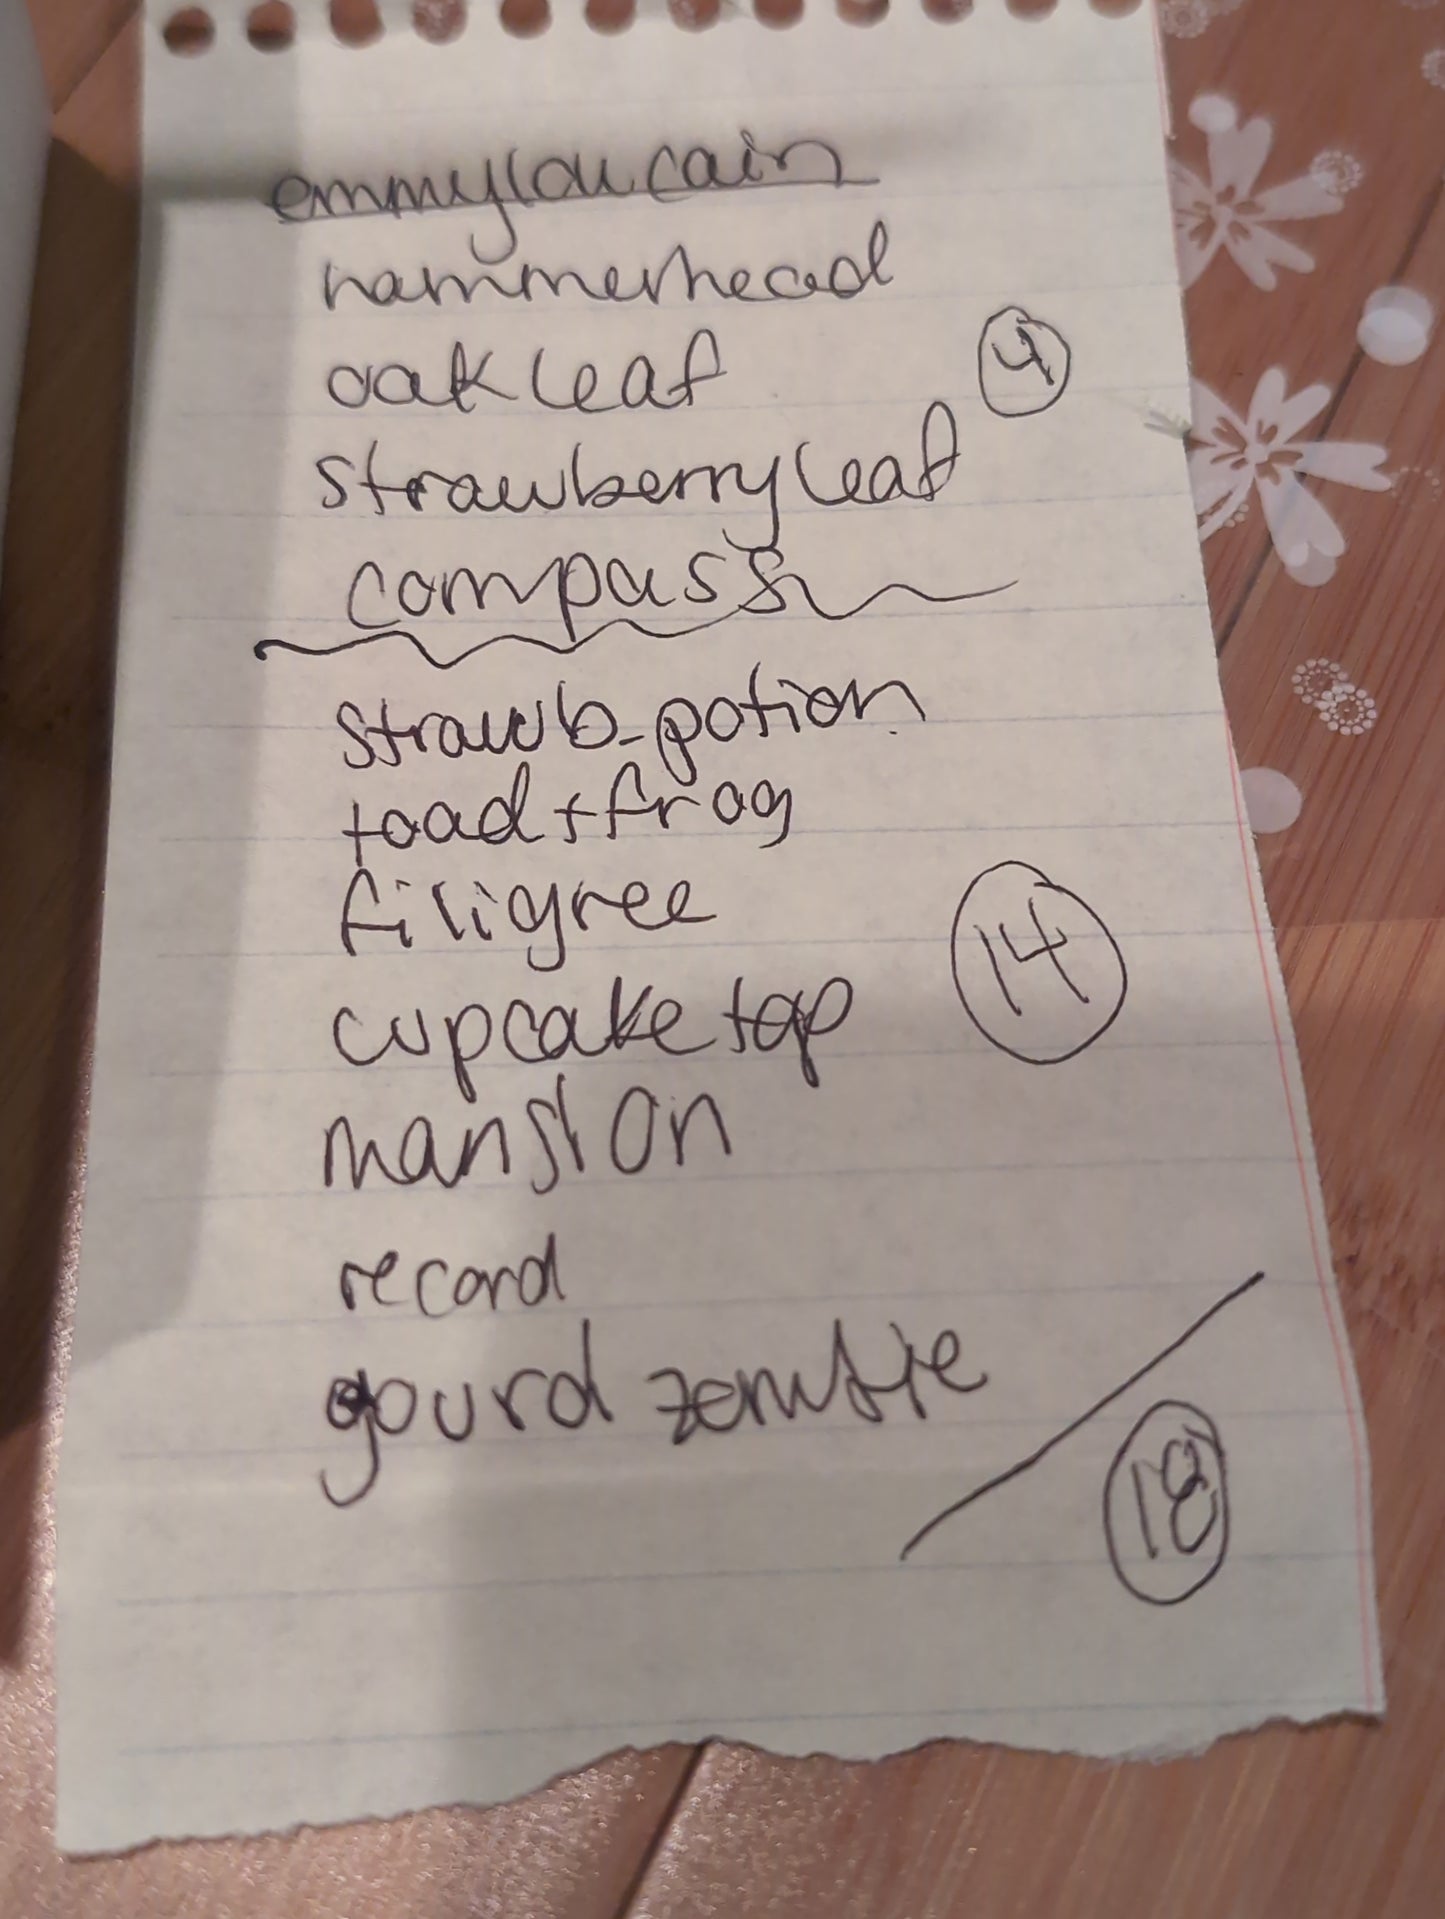 emmylou cain
hammerhead
oak leaf
4
strawberry leaf
compass
strawb-potion
toad + frog
filigree
cupcake top
14
mansion
record
gourd zombie
18